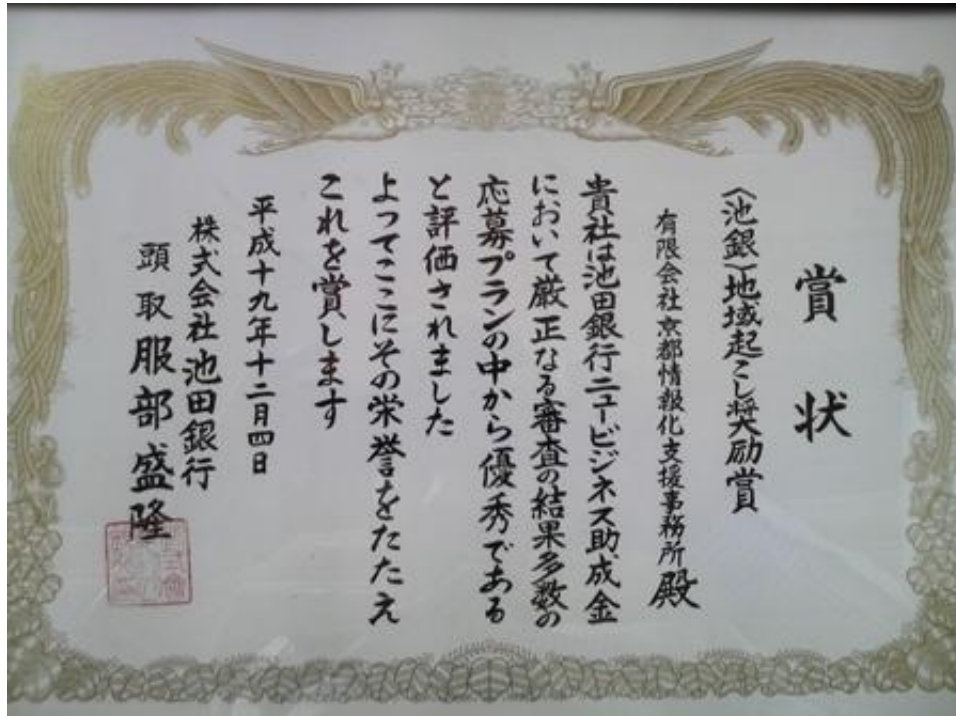 賞状
〈池銀〉地域起こし奨励賞
有限会社京都情報化支援事務所殿
貴社は池田銀行ニュービジネス助成金
において厳正なる審査の結果多数の
応募プランの中から優秀である
と評価されました
よってここにその栄誉をたたえ
これを賞します
平成十九年十二月四日
株式会社池田銀行
頭取服部盛隆